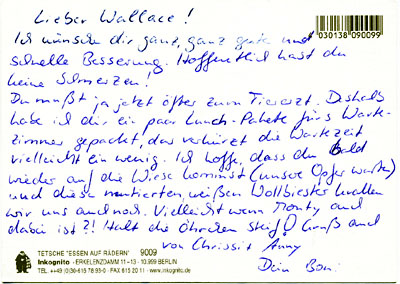 Lieber Wallace!
Ich wünsche dir ganz, ganz gute und
schnelle Besserung. Hoffentlich hast du
keine Schmerzen!
Du mußt ja jetzt öfter zum Tierarzt. Deshalb
habe ich dir ein paar Lunch-Pakete fürs Warte-
zimmer gepackt, das verkürzt die Wartezeit
vielleicht ein wenig. Ich hoffe, dass du bald
wieder auf die Wiese kommst (unsere Opfer warten)
und diese mutierten, weißen Wollbiester krallen
wir uns auch noch. Vielleicht wenn Monty auch
dabei ist?! Halt die Öhrchen steif! Gruß auch
von Chrissi + Anny
Dein Bon.
030138 090099
TETSCHE "ESSEN AUF RÄDERN" 9009
Inkognito · ERKELENZDAMM 11–13 · 10.999 BERLIN
TEL. ++49 (0)30-615 78 93-0 · FAX 615 20 11 · www.inkognito.de